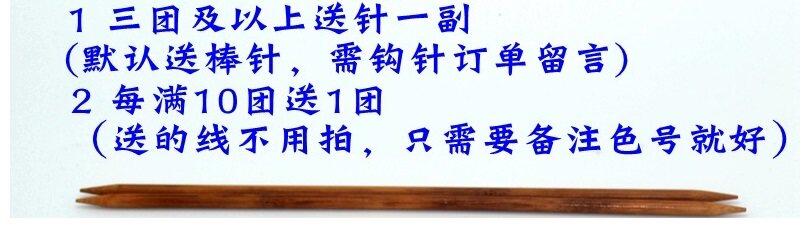 1 三团及以上送针一副
(默认送棒针，需钩针订单留言)
2 每满10团送1团
(送的线不用拍，只需要备注色号就好)